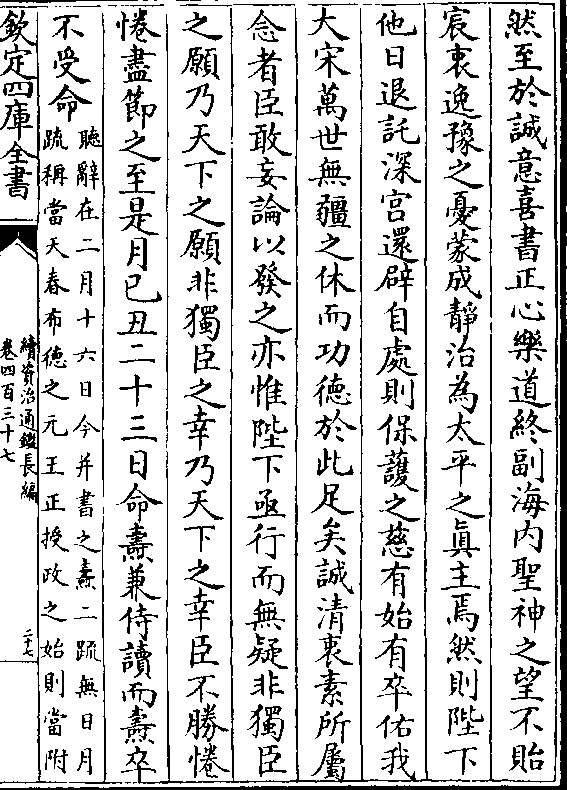 然至於誠意喜書正心樂道終副海内聖神之望不貽
宸衷逸豫之憂蒙成靜治為太平之真主焉然則陛下
他日退託深宫還辟自處則保護之慈有始有卒佑我
大宋萬世無疆之休而功德於此足矣誠清衷素所屬
念者臣敢妄論以發之亦惟陛下亟行而無疑非獨臣
之願乃天下之願非獨臣之幸乃天下之幸臣不勝惓
惓盡節之至是月已丑二十三日命燾兼侍讀而燾卒
不受命
聽辭在二月十六日今并書之燾二疏無日月
疏稱當天春布德之元王正授政之始則當附
欽定四庫全書
續資治通鑑長編
卷四百三十七
二十七